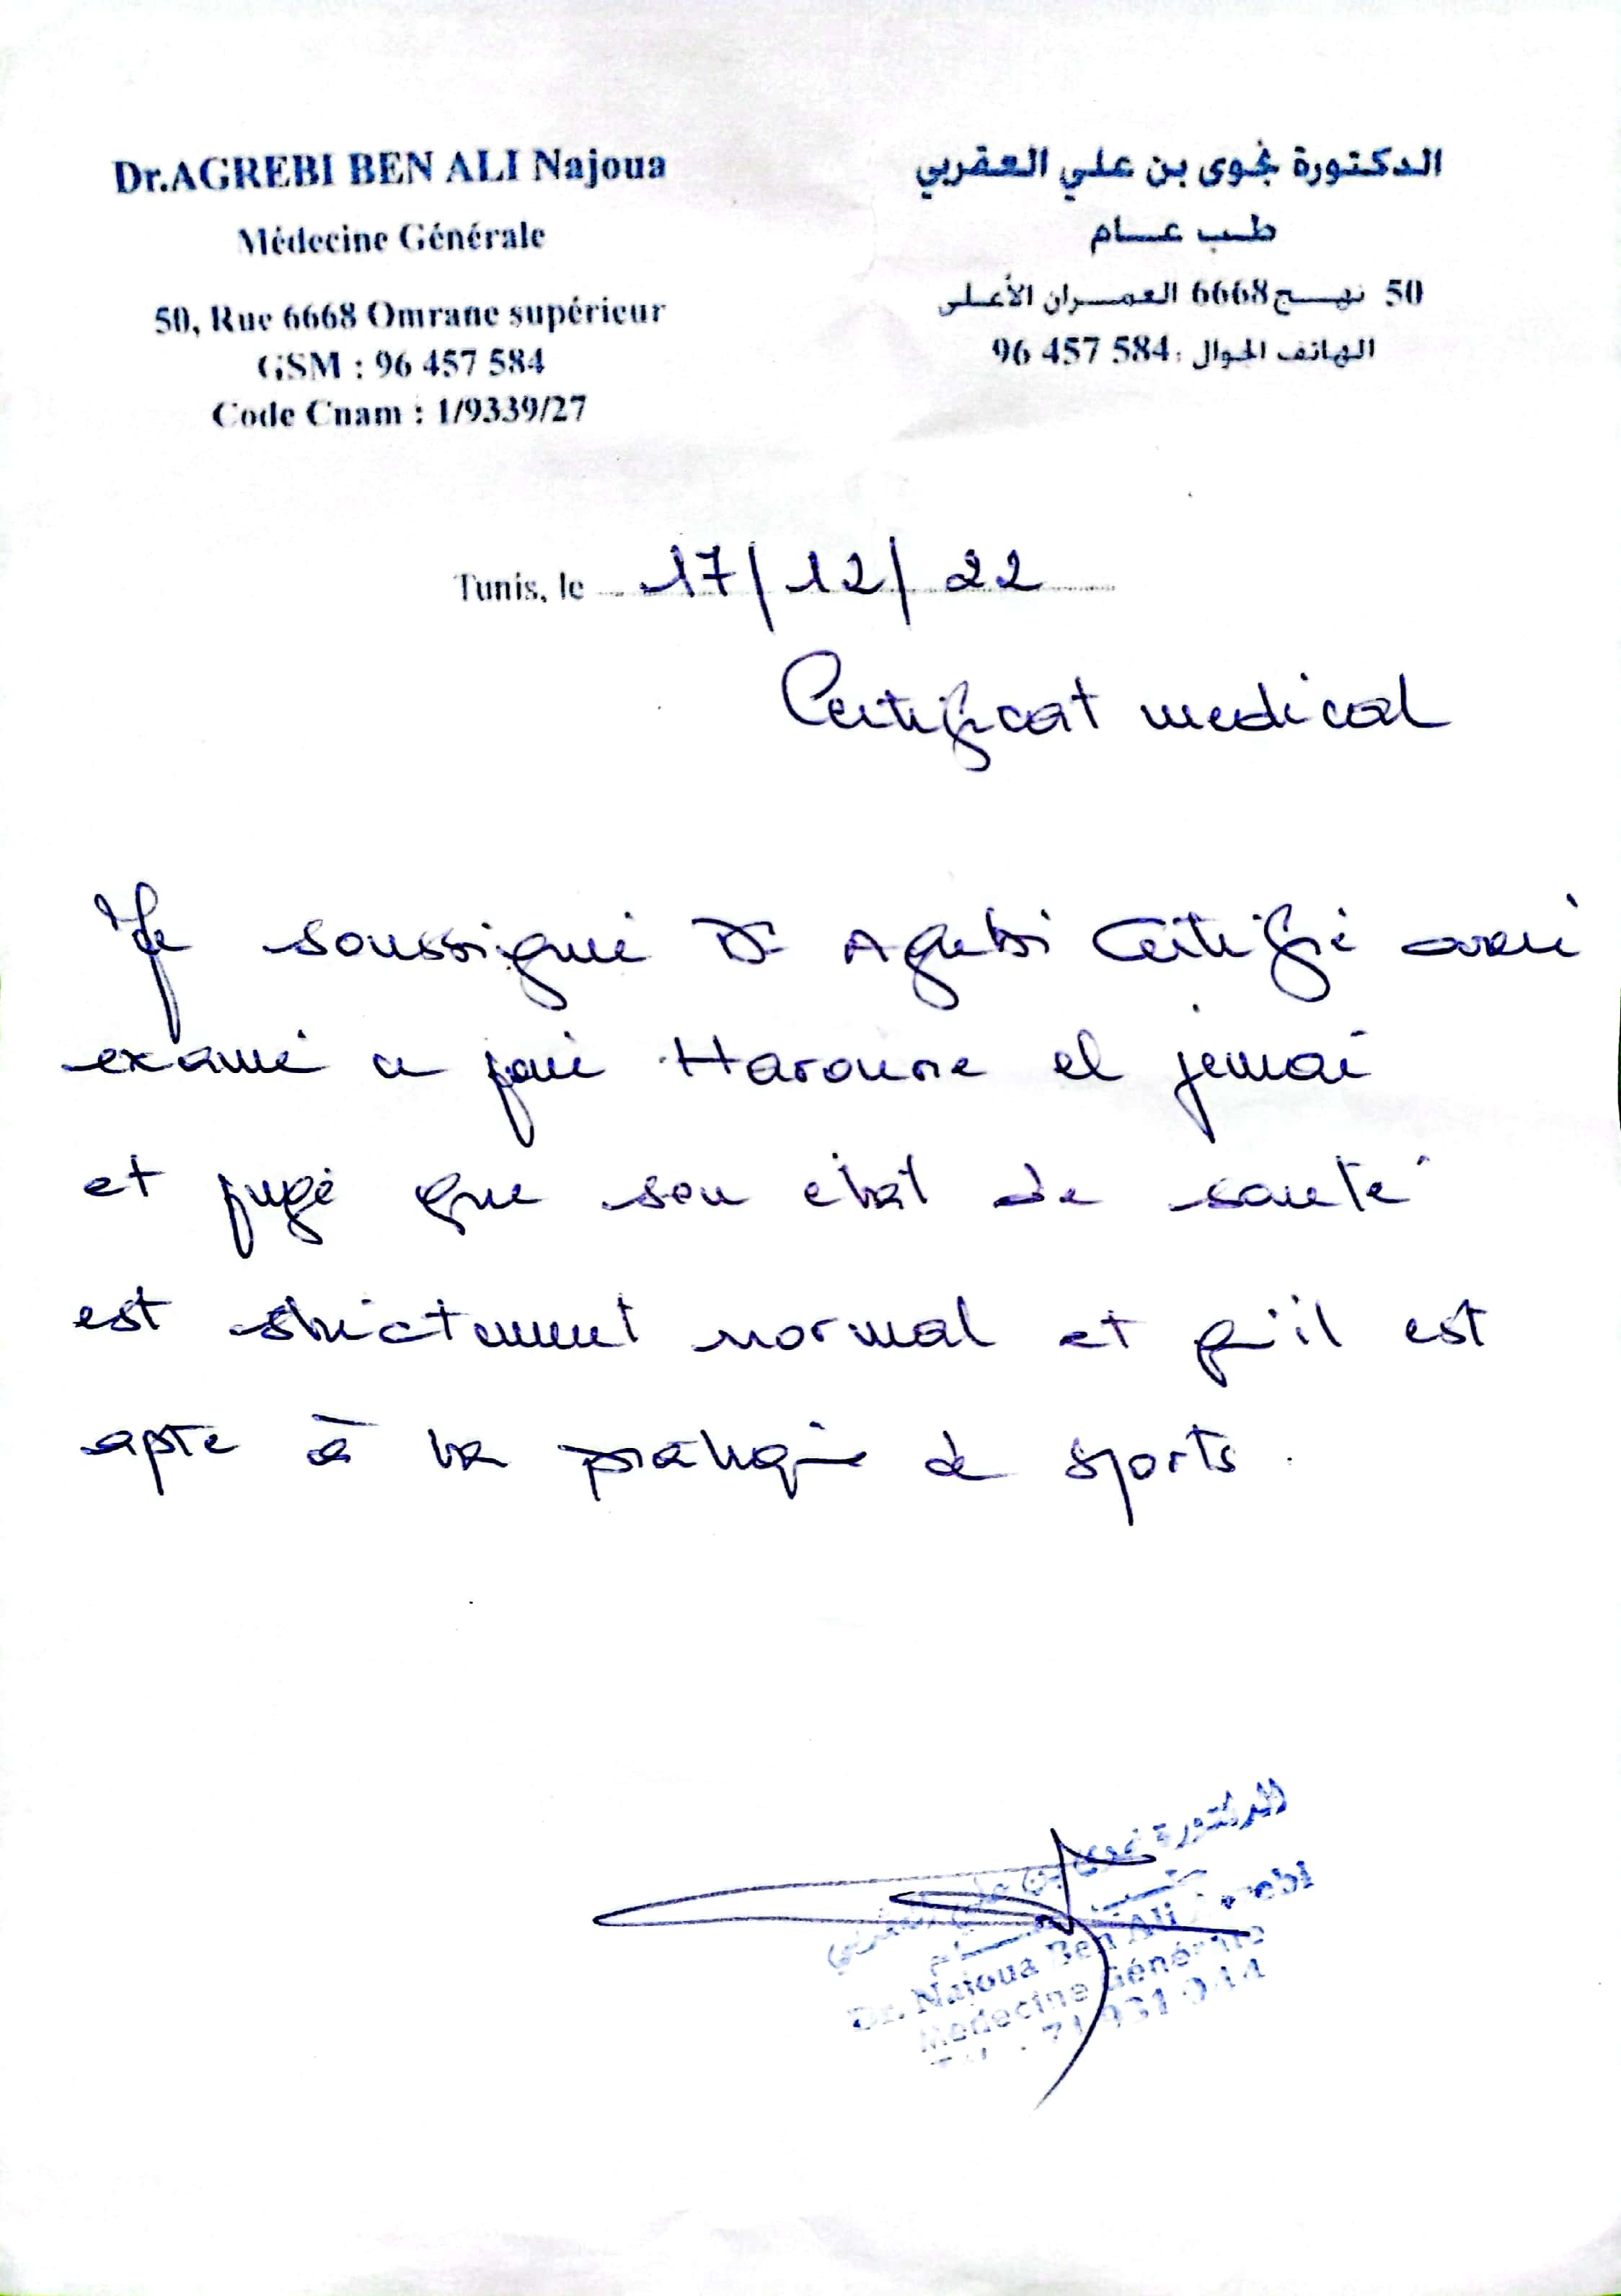 Dr.AGREBI BEN ALI Najoua
Médecine Générale
50, Rue 6668 Omrane supérieur
GSM : 96 457 584
Code Cnam : 1/9339/27
الدكتورة نجوى بن علي العقربي
طب عام
50 نهج 6668 العمران الأعلى
الهاتف الجوال : 96 457 584
Tunis, le 17/12/22
Certificat medical
Je soussigné Dr Agrebi Certifié avoir
examiné ce jour Haroune el jemai
et jugé que son état de santé
est strictement normal et qu'il est
apte à la pratique de sports.
الدكتورة نجوى بن علي العقربي
طب عام
Dr. Najoua Ben Ali Agrebi
Medecine Générale
71 931 044